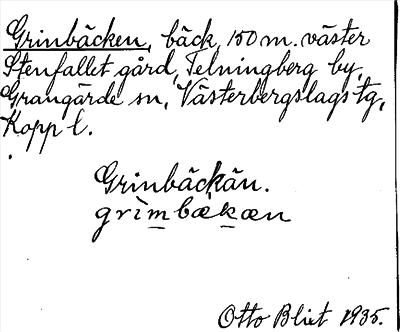 Grinbäcken, bäck, 150 m. väster
Stenfallet gård, Telningberg by,
Grangärde sn, Västerbergslags tg,
Kopp l.
Grinbäckän.
grìm̲bækæn
Otto Blixt 1935.